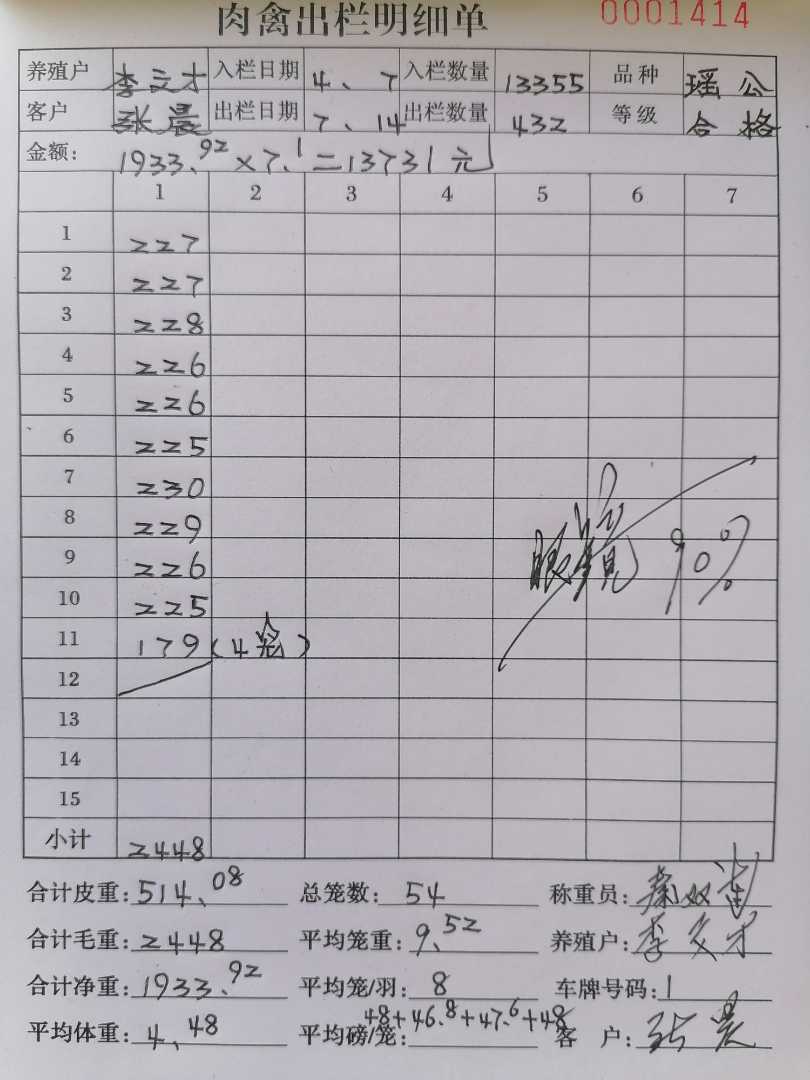 肉禽出栏明细单 0001414
养殖户 李文才 入栏日期 4、7 入栏数量 13355 品种 瑶公
客户 张晨 出栏日期 7、14 出栏数量 432 等级 合格
金额: 1933.92×7.1=13731元
1 2 3 4 5 6 7
1 227
2 227
3 228
4 226
5 226
6 225
7 230
8 229
9 226
眼镜 90%
10 225
11 179(4笼)
12
13
14
15
小计 2448
合计皮重: 514.08 总笼数: 54 称重员:
合计毛重: 2448 平均笼重: 9.52 养殖户: 李文才
合计净重: 1933.92 平均笼/羽: 8 车牌号码: 1
平均体重: 4.48 平均磅/笼: 48+46.8+47.6+48 客户: 张晨